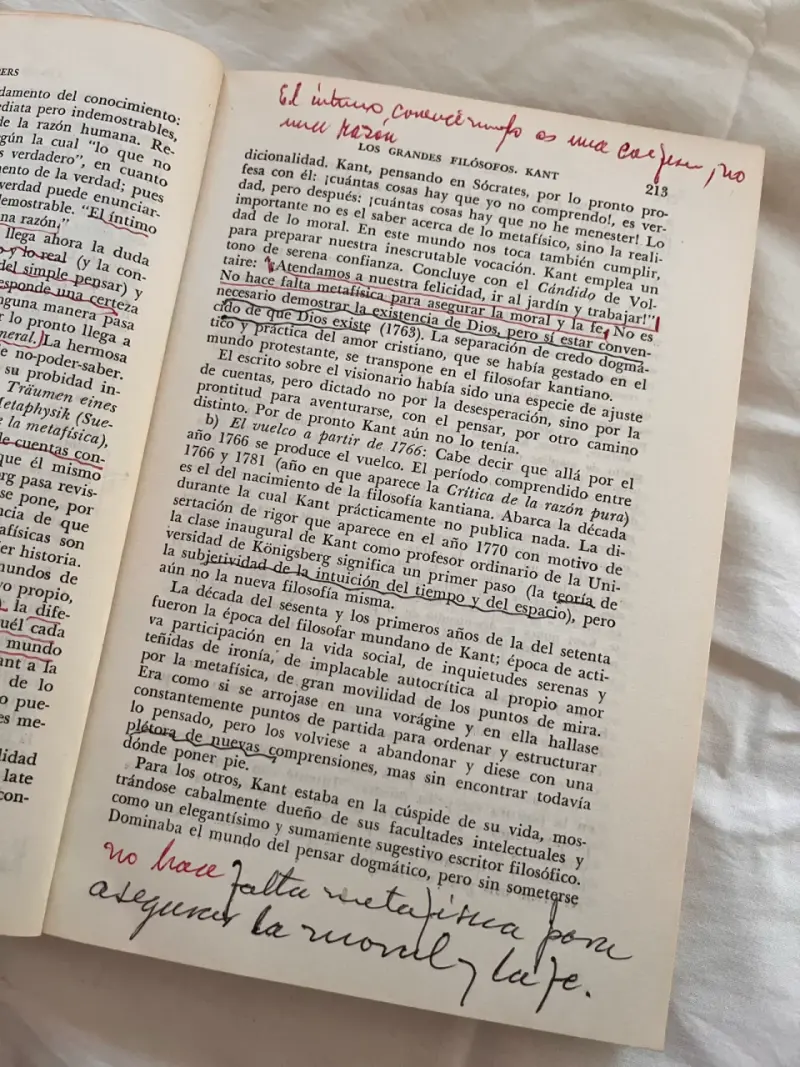 ERS
damento del conocimiento:
diata pero indemostrables,
de la razón humana. Re-
gún la cual "lo que no
s verdadero", en cuanto
mento de la verdad; pues
verdad puede enunciar-
demostrable. "El íntimo
na razón."
llega ahora la duda
o y lo real (y la con-
del simple pensar) y
sponde una certeza
nguna manera pasa
r lo pronto llega a
neral. La hermosa
e no-poder-saber.
su probidad in-
Träumen eines
Metaphysik (Sue-
la metafísica),
de cuentas con-
que él mismo
rg pasa revis-
se pone, por
ncia de que
afísicas son
er historia.
mundos de
vo propio,
la dife-
uél cada
mundo
ant a la
de lo
o pue-
es me-
lidad
late
con-
El íntimo convencimiento es una , no
una razón
LOS GRANDES FILÓSOFOS. KANT 213
dicionalidad. Kant, pensando en Sócrates, por lo pronto pro-
fesa con él: ¡cuántas cosas hay que yo no comprendo!, es ver-
dad, pero después: ¡cuántas cosas hay que no he menester! Lo
importante no es el saber acerca de lo metafísico, sino la reali-
dad de lo moral. En este mundo nos toca también cumplir,
para preparar nuestra inescrutable vocación. Kant emplea un
tono de serena confianza. Concluye con el Cándido de Vol-
taire: "Atendamos a nuestra felicidad, ir al jardín y trabajar!"
No hace falta metafísica para asegurar la moral y la fe. No es
necesario demostrar la existencia de Dios, pero sí estar conven-
cido de que Dios existe (1763). La separación de credo dogmá-
tico y práctica del amor cristiano, que se había gestado en el
mundo protestante, se transpone en el filosofar kantiano.
El escrito sobre el visionario había sido una especie de ajuste
de cuentas, pero dictado no por la desesperación, sino por la
prontitud para aventurarse, con el pensar, por otro camino
distinto. Por de pronto Kant aún no lo tenía.
b) El vuelco a partir de 1766: Cabe decir que allá por el
año 1766 se produce el vuelco. El período comprendido entre
1766 y 1781 (año en que aparece la Crítica de la razón pura)
es el del nacimiento de la filosofía kantiana. Abarca la década
durante la cual Kant prácticamente no publica nada. La di-
sertación de rigor que aparece en el año 1770 con motivo de
la clase inaugural de Kant como profesor ordinario de la Uni-
versidad de Königsberg significa un primer paso (la teoría de
la subjetividad de la intuición del tiempo y del espacio), pero
aún no la nueva filosofía misma.
La década del sesenta y los primeros años de la del setenta
fueron la época del filosofar mundano de Kant; época de acti-
va participación en la vida social, de inquietudes serenas y
teñidas de ironía, de implacable autocrítica al propio amor
por la metafísica, de gran movilidad de los puntos de mira.
Era como si se arrojase en una vorágine y en ella hallase
constantemente puntos de partida para ordenar y estructurar
lo pensado, pero los volviese a abandonar y diese con una
plétora de nuevas comprensiones, mas sin encontrar todavía
dónde poner pie.
Para los otros, Kant estaba en la cúspide de su vida, mos-
trándose cabalmente dueño de sus facultades intelectuales y
como un elegantísimo y sumamente sugestivo escritor filosófico.
Dominaba el mundo del pensar dogmático, pero sin someterse
no hace falta metafísica para
asegurar la moral y la fe.